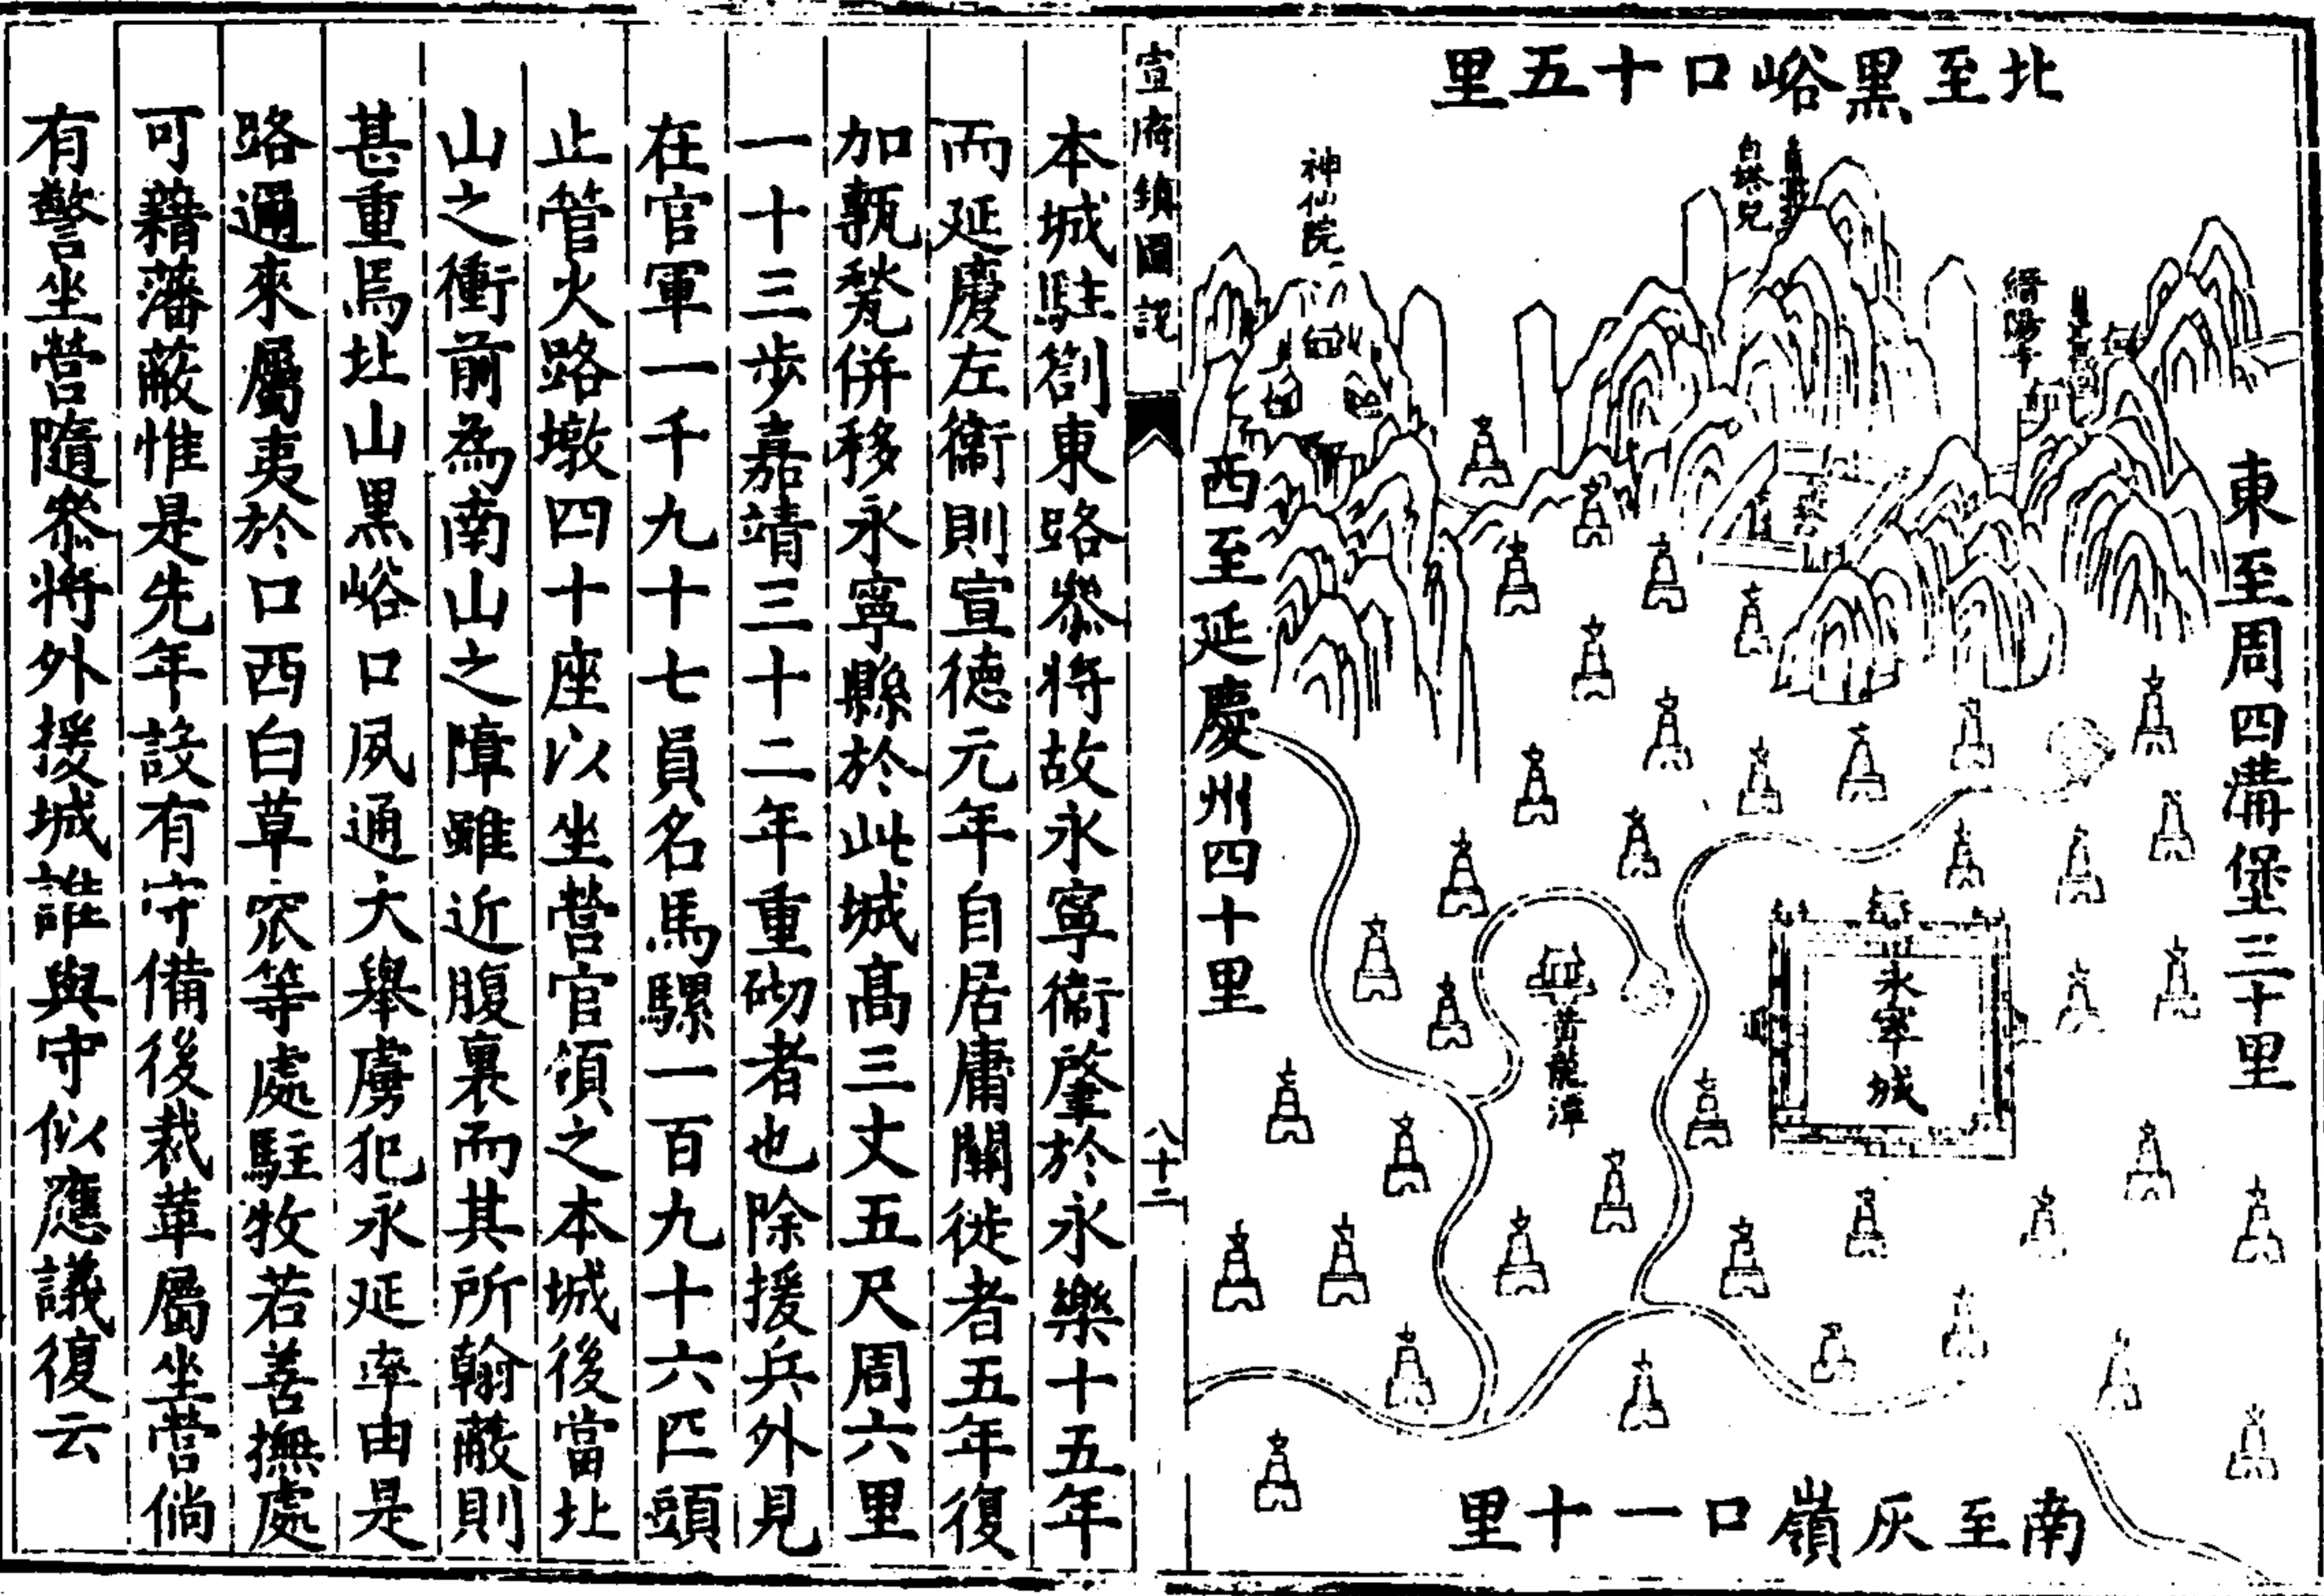 北至黑峪口十五里
白塔兒
神仙院
縉陽寺
東至周四溝堡三十里
西至延慶州四十里
永寧城
黃龍潭
南至灰嶺口一十里
宣府鎮圖說
八十二
本城駐劄東路叅將故永寧衞肇於永樂十五年
而延慶左衞則宣德元年自居庸關徙者五年復
加甎甃併移永寧縣於此城高三丈五尺周六里
一十三步嘉靖三十二年重砌者也除援兵外見
在官軍一千九十七員名馬騾一百九十六匹頭
止管火路墩四十座以坐營官領之本城後當北
山之衝前為南山之障雖近腹裏而其所翰蔽則
甚重焉北山黑峪口夙通大舉虜犯永延率由是
路邇來屬夷於口西白草窊等處駐牧若善撫處
可藉藩蔽惟是先年設有守備後裁革屬坐營倘
有警坐營隨叅將外援城誰與守似應議復云